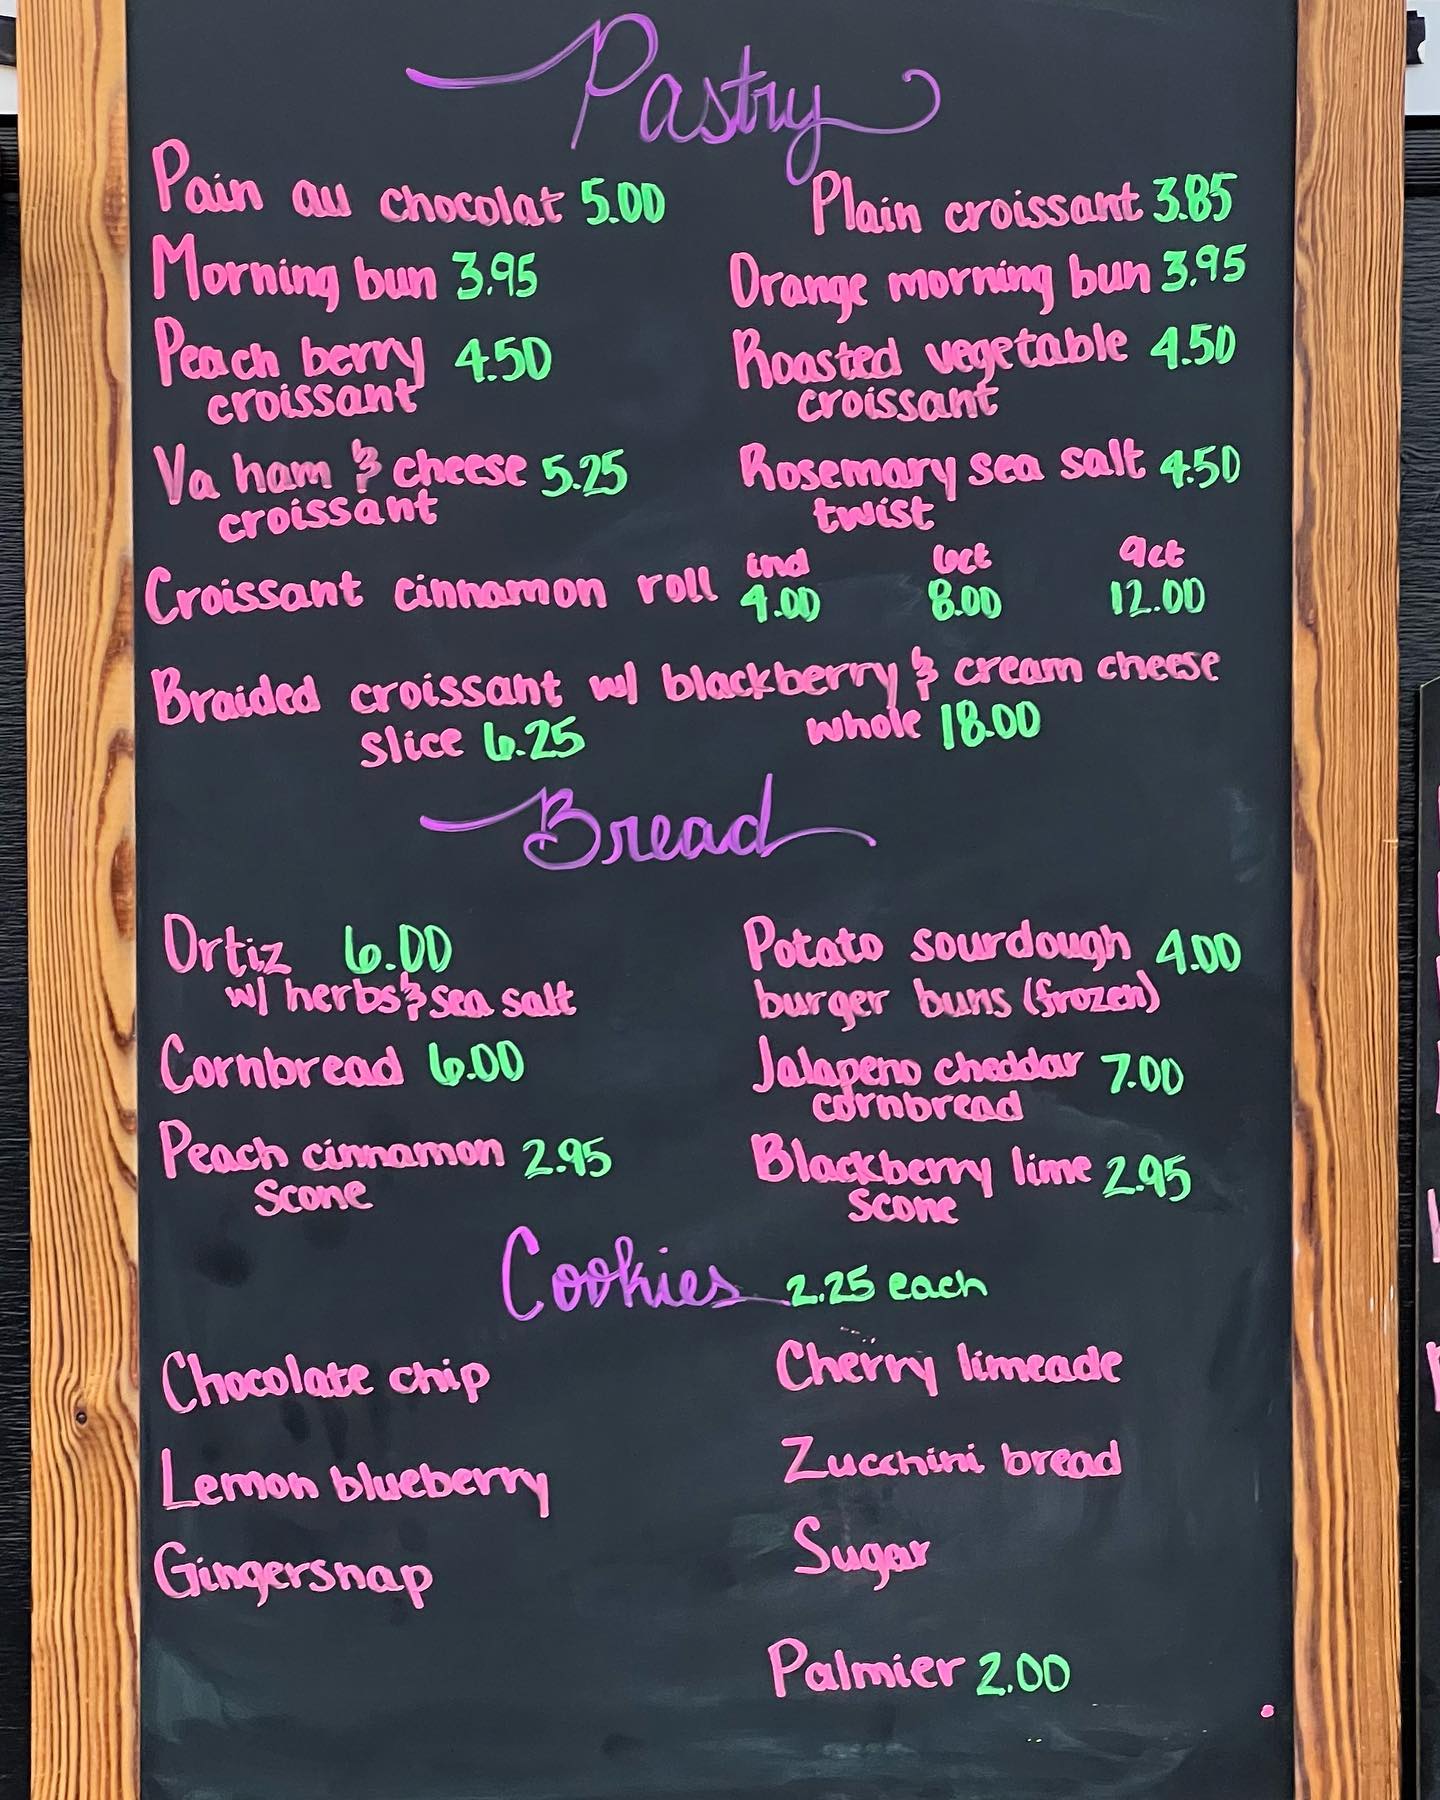 Pastry
Pain au chocolat 5.00
Plain croissant 3.85
Morning bun 3.95
Orange morning bun 3.95
Peach berry 4.50
croissant
Roasted vegetable 4.50
croissant
Va ham & cheese 5.25
croissant
Rosemary sea salt 4.50
twist
ind 6ct 9ct
Croissant cinnamon roll 4.00 8.00 12.00
Braided croissant w/ blackberry & cream cheese
slice 6.25 whole 18.00
Bread
Ortiz 6.00
w/ herbs & sea salt
Potato sourdough 4.00
burger buns (frozen)
Cornbread 6.00
Jalapeno cheddar 7.00
cornbread
Peach cinnamon 2.95
scone
Blackberry lime 2.95
scone
Cookies 2.25 each
Chocolate chip
Cherry limeade
Lemon blueberry
Zucchini bread
Gingersnap
Sugar
Palmier 2.00